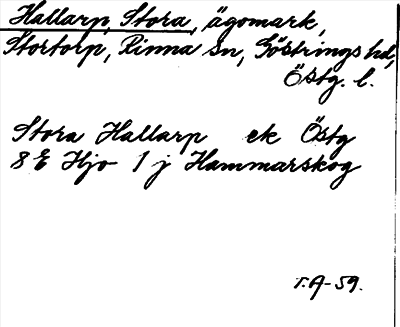 Hallarp, Stora, ägomark,
Stortorp, Rinna sn, Göstrings hd,
Östg. l.
Stora Hallarp ek Östg
8 E Hjo 1 j Hammarskog
T.A-59.